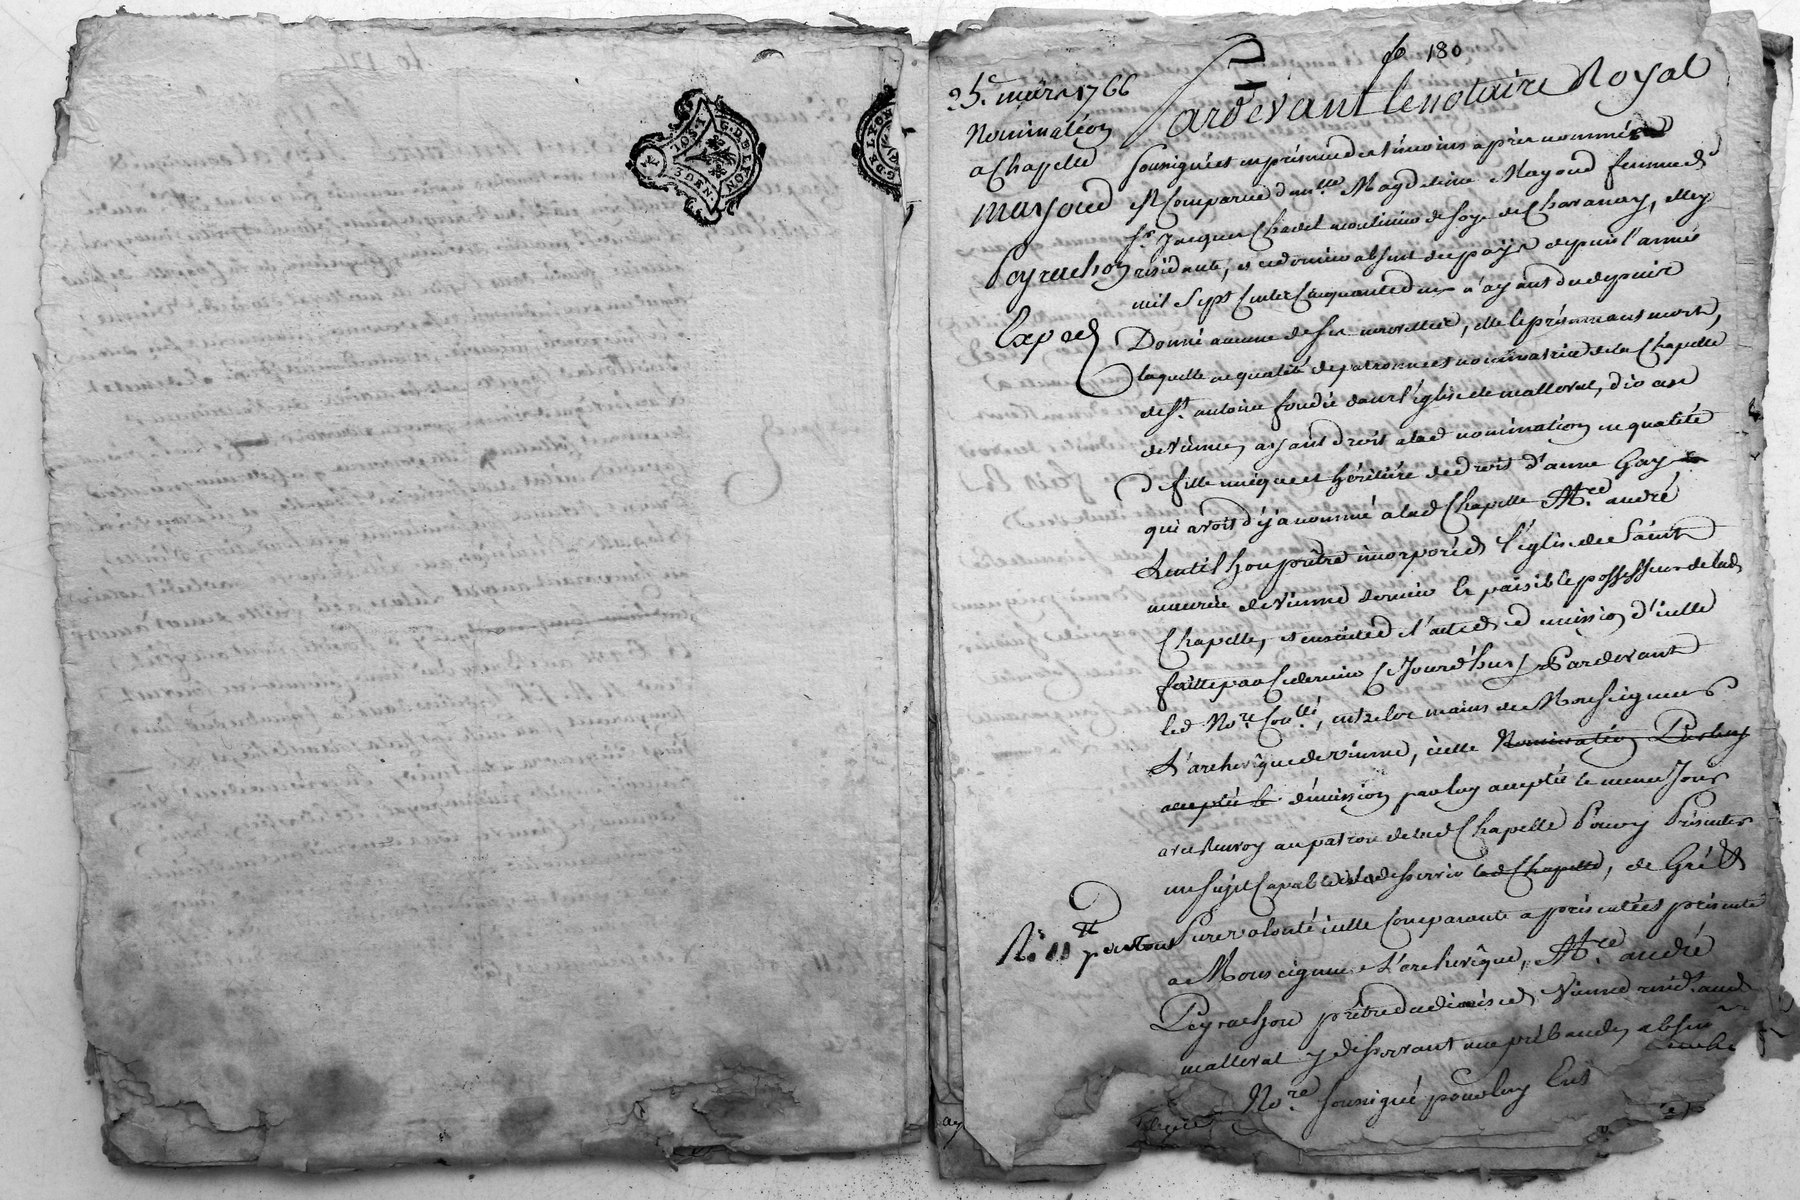 G. DE LYON
3 DEN.
G. DE LYON
fo 180
25e. mars 1766
Nomination
a Chapelle
mayoud
Peyrachon
Exped
Pardevant le notaire Royal
soussigné et en présence des témoins après nommés
est Comparue dem.lle Magdeleine Mayoud femme de
sr. Jacques Chadel moulinier de soye de Chavanay, elle y
résidante, et ce dernier absent du pays depuis l'année
mil sept Cents Cinquante deux n'ayant du depuis
Donné aucune de ses nouvelles, elle le présumant mort,
laquelle en qualité de patronne et nominatrice de la Chapelle
de st. antoine fondée dans l'église de malleval, diocese
de vienne, ayant droit a lad nomination en qualité
de fille unique et héritière de droit d'anne Gay
qui avoit déja nommé a lad Chapelle Mre. andré
Gentilhon prêtre incorporé en l'église de Saint
maurice de vienne dernier et paisible possesseur de lad
Chapelle, et ensuite de l'acte de démission d'icelle
faitte par Ce dernier Cejourd'huy Pardevant
led No.re Soussé., entre les mains de Monseigneur
L'archevêque de vienne, icelle Nomination Par luy
acceptée le démission par luy acceptée le meme Jour
avec Renvoy au patron de lad Chapelle Pour y Présenter
un sujet Capable de desservir lad Chapelle, de Gré et
pure volonté icelle Comparante a présenté et présente
a Monseigneur L'archevêque, Mre. andré
Peyrachon prêtre du diocèse de Vienne résidt. aud
malleval y desservant une prébande, absent
No.re soussigné pour luy